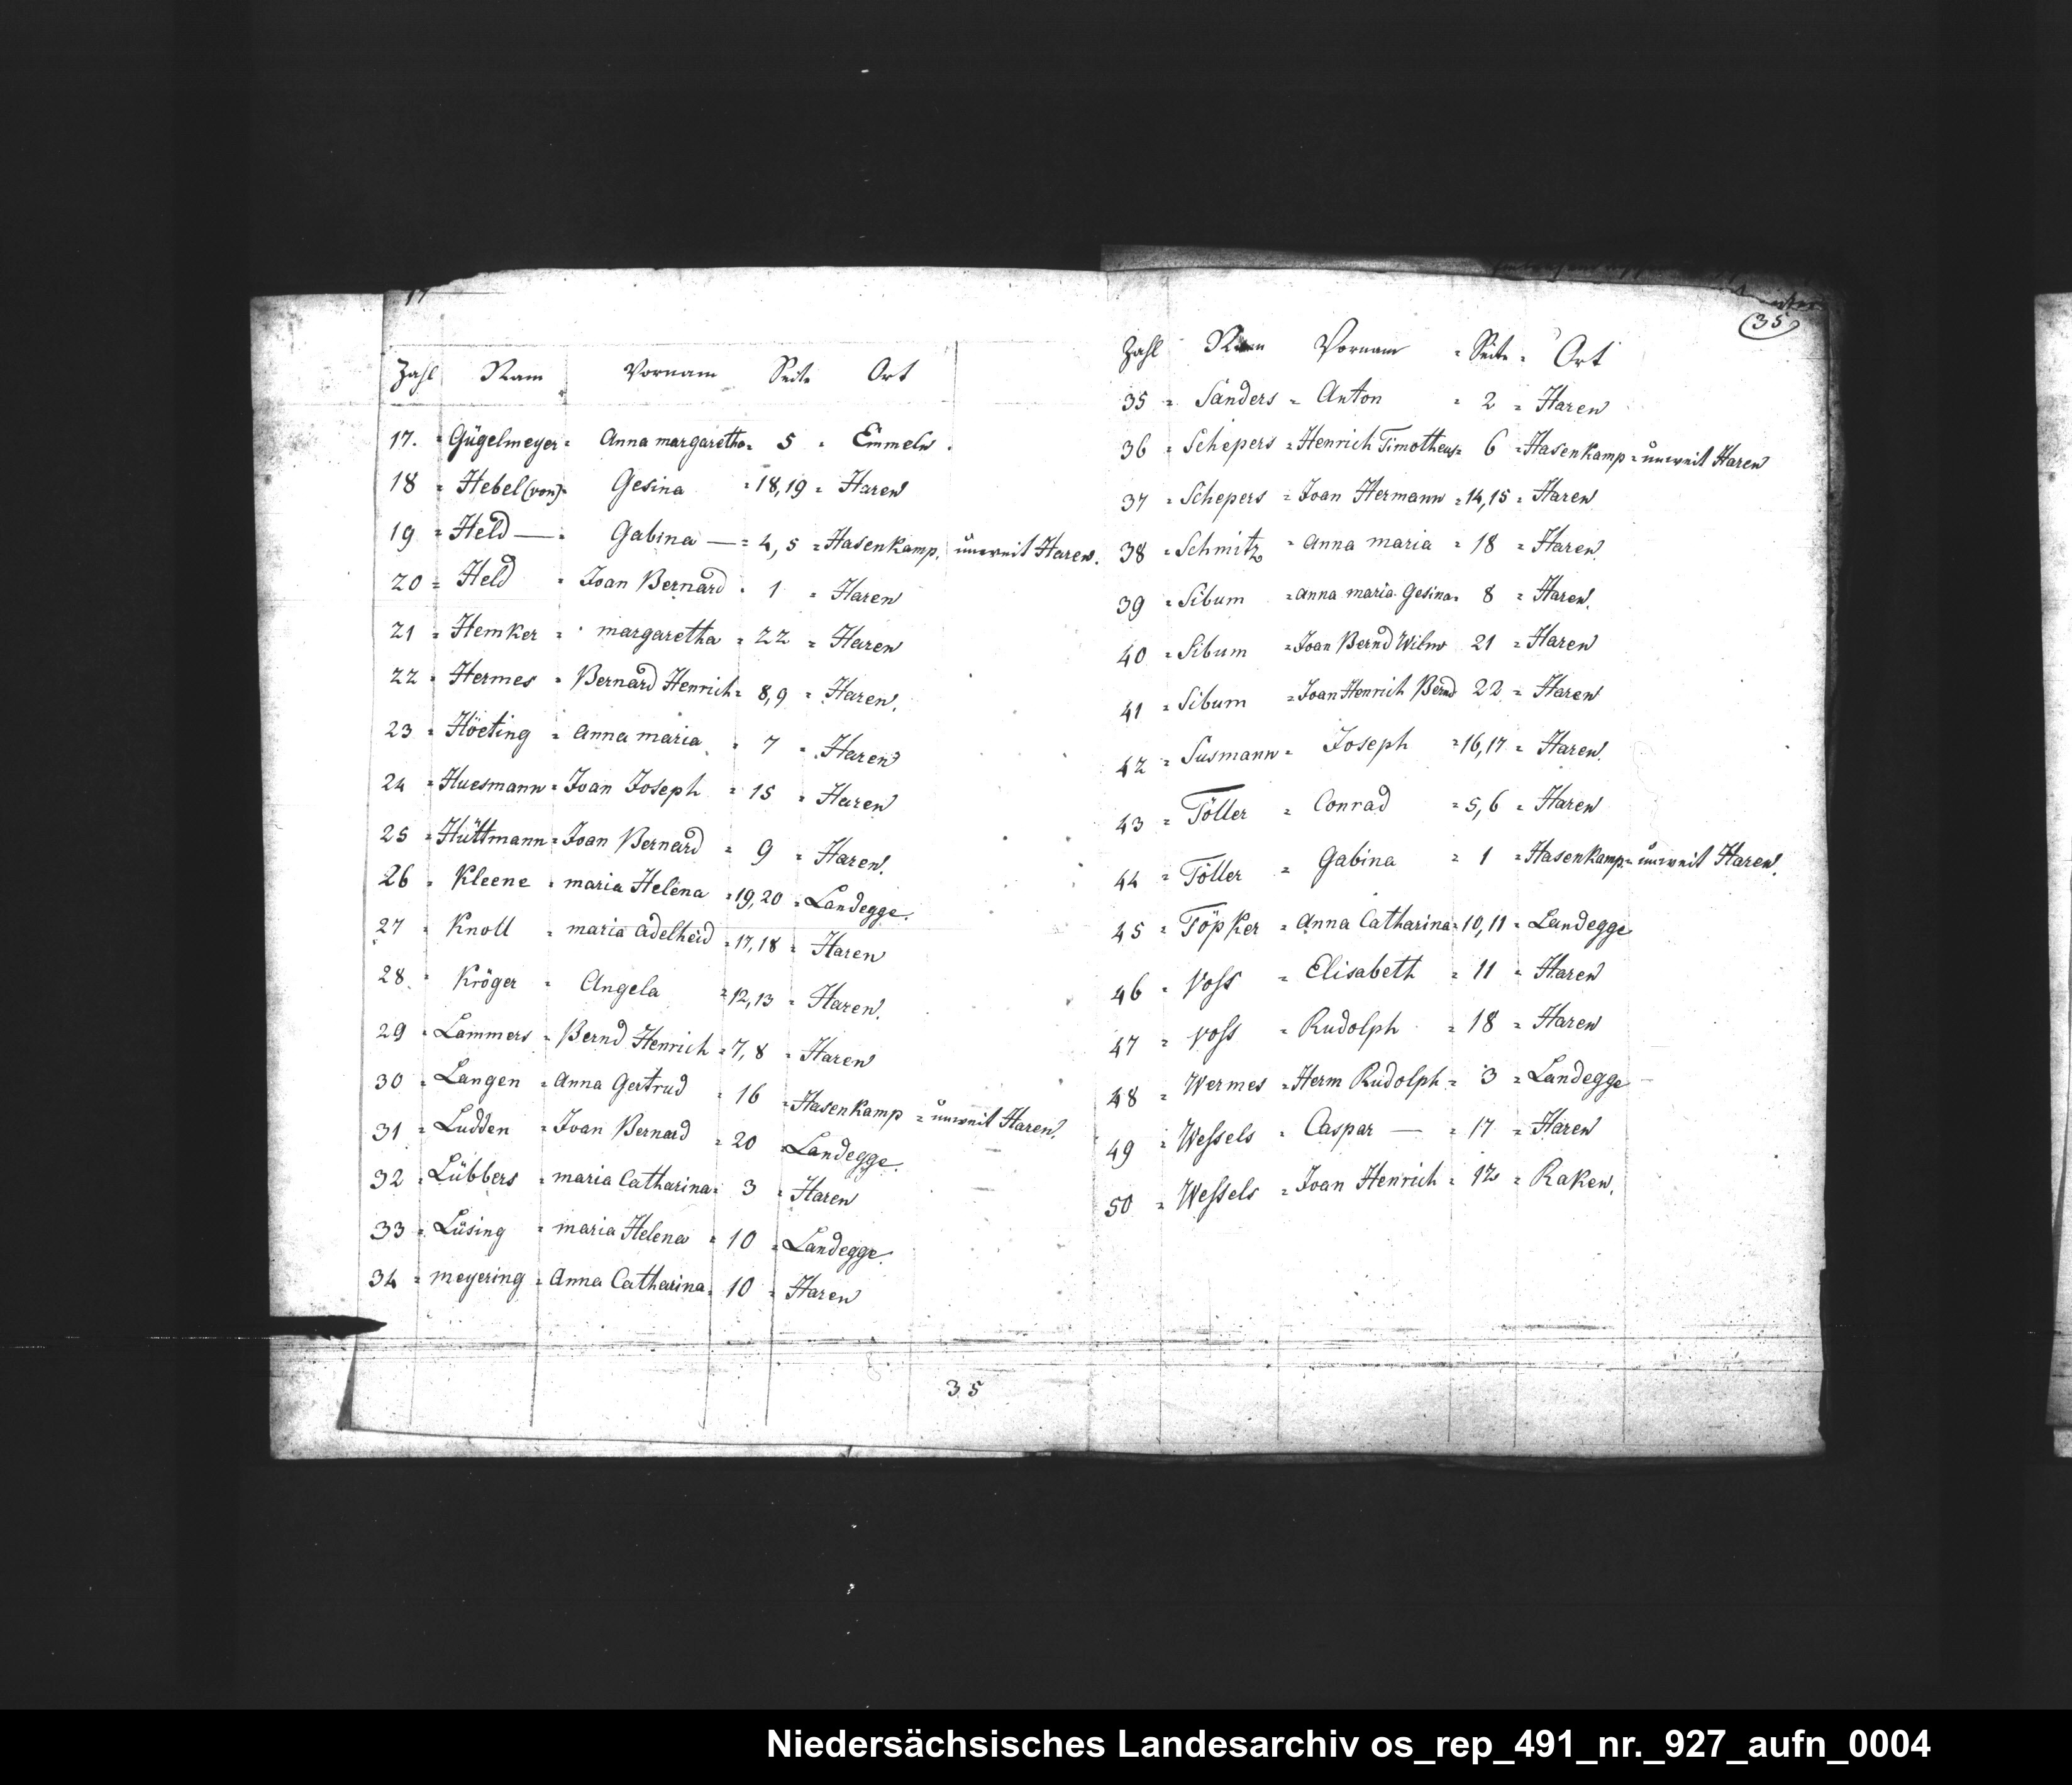 17
Zahl Nam Vornam Seite Ort
17. = Gügelmeyer = Anna margaretha = 5 = Emmeln.
18 = Hebel (von) = Gesina = 18, 19 = Haren
19 = Held — = Gabina — = 4, 5 = Hasenkamp, unweit Haren.
20 = Held = Joan Bernard = 1 = Haren
21 = Hemker = margaretha = 22 = Haren
22 = Hermes = Bernard Henrich = 8, 9 = Haren.
23 = Höeting = Anna maria = 7 = Haren
24 = Huesmann = Joan Joseph = 15 = Haren
25 = Hüttmann = Joan Bernard = 9 = Haren.
26 = Kleene = maria Helena = 19, 20 = Landegge.
27 = Knoll = maria adelheid = 17, 18 = Haren
28 = Kröger = Angela = 12, 13 = Haren.
29 = Lammers = Bernd Henrich = 7, 8 = Haren
30 = Langen = Anna Gertrud = 16 = Hasenkamp = unweit Haren.
31 = Ludden = Joan Bernard = 20 = Landegge.
32 = Lübbers = maria Catharina = 3 = Haren
33 = Lüsing = maria Helena = 10 = Landegge.
34 = meyering = Anna Catharina = 10 = Haren
35
(35)
Zahl Nam Vornam = Seite = Ort
35 = Sanders = Anton = 2 = Haren
36 = Schepers = Henrich Timotheus = 6 = Hasenkamp = unweit Haren
37 = Schepers = Joan Hermann = 14, 15 = Haren
38 = Schmitz = anna maria = 18 = Haren
39 = Sibum = anna maria Gesina = 8 = Haren.
40 = Sibum = Joan Bernd Wilm 21 = Haren
41 = Sibum = Joan Henrich Bernd 22 = Haren
42 = Susmann = Joseph = 16, 17 = Haren.
43 = Töller = Conrad = 5, 6 = Haren
44 = Töller = Gabina = 1 = Hasenkamp = unweit Haren.
45 = Töpker = Anna Catharina = 10, 11 = Landegge
46 = Voss = Elisabeth = 11 = Haren
47 = Voss = Rudolph = 18 = Haren
48 = Wermes = Herm Rudolph = 3 = Landegge
49 = Wessels = Caspar — = 17 = Haren
50 = Wessels = Joan Henrich = 12 = Raken.
Niedersächsisches Landesarchiv os_rep_491_nr._927_aufn_0004